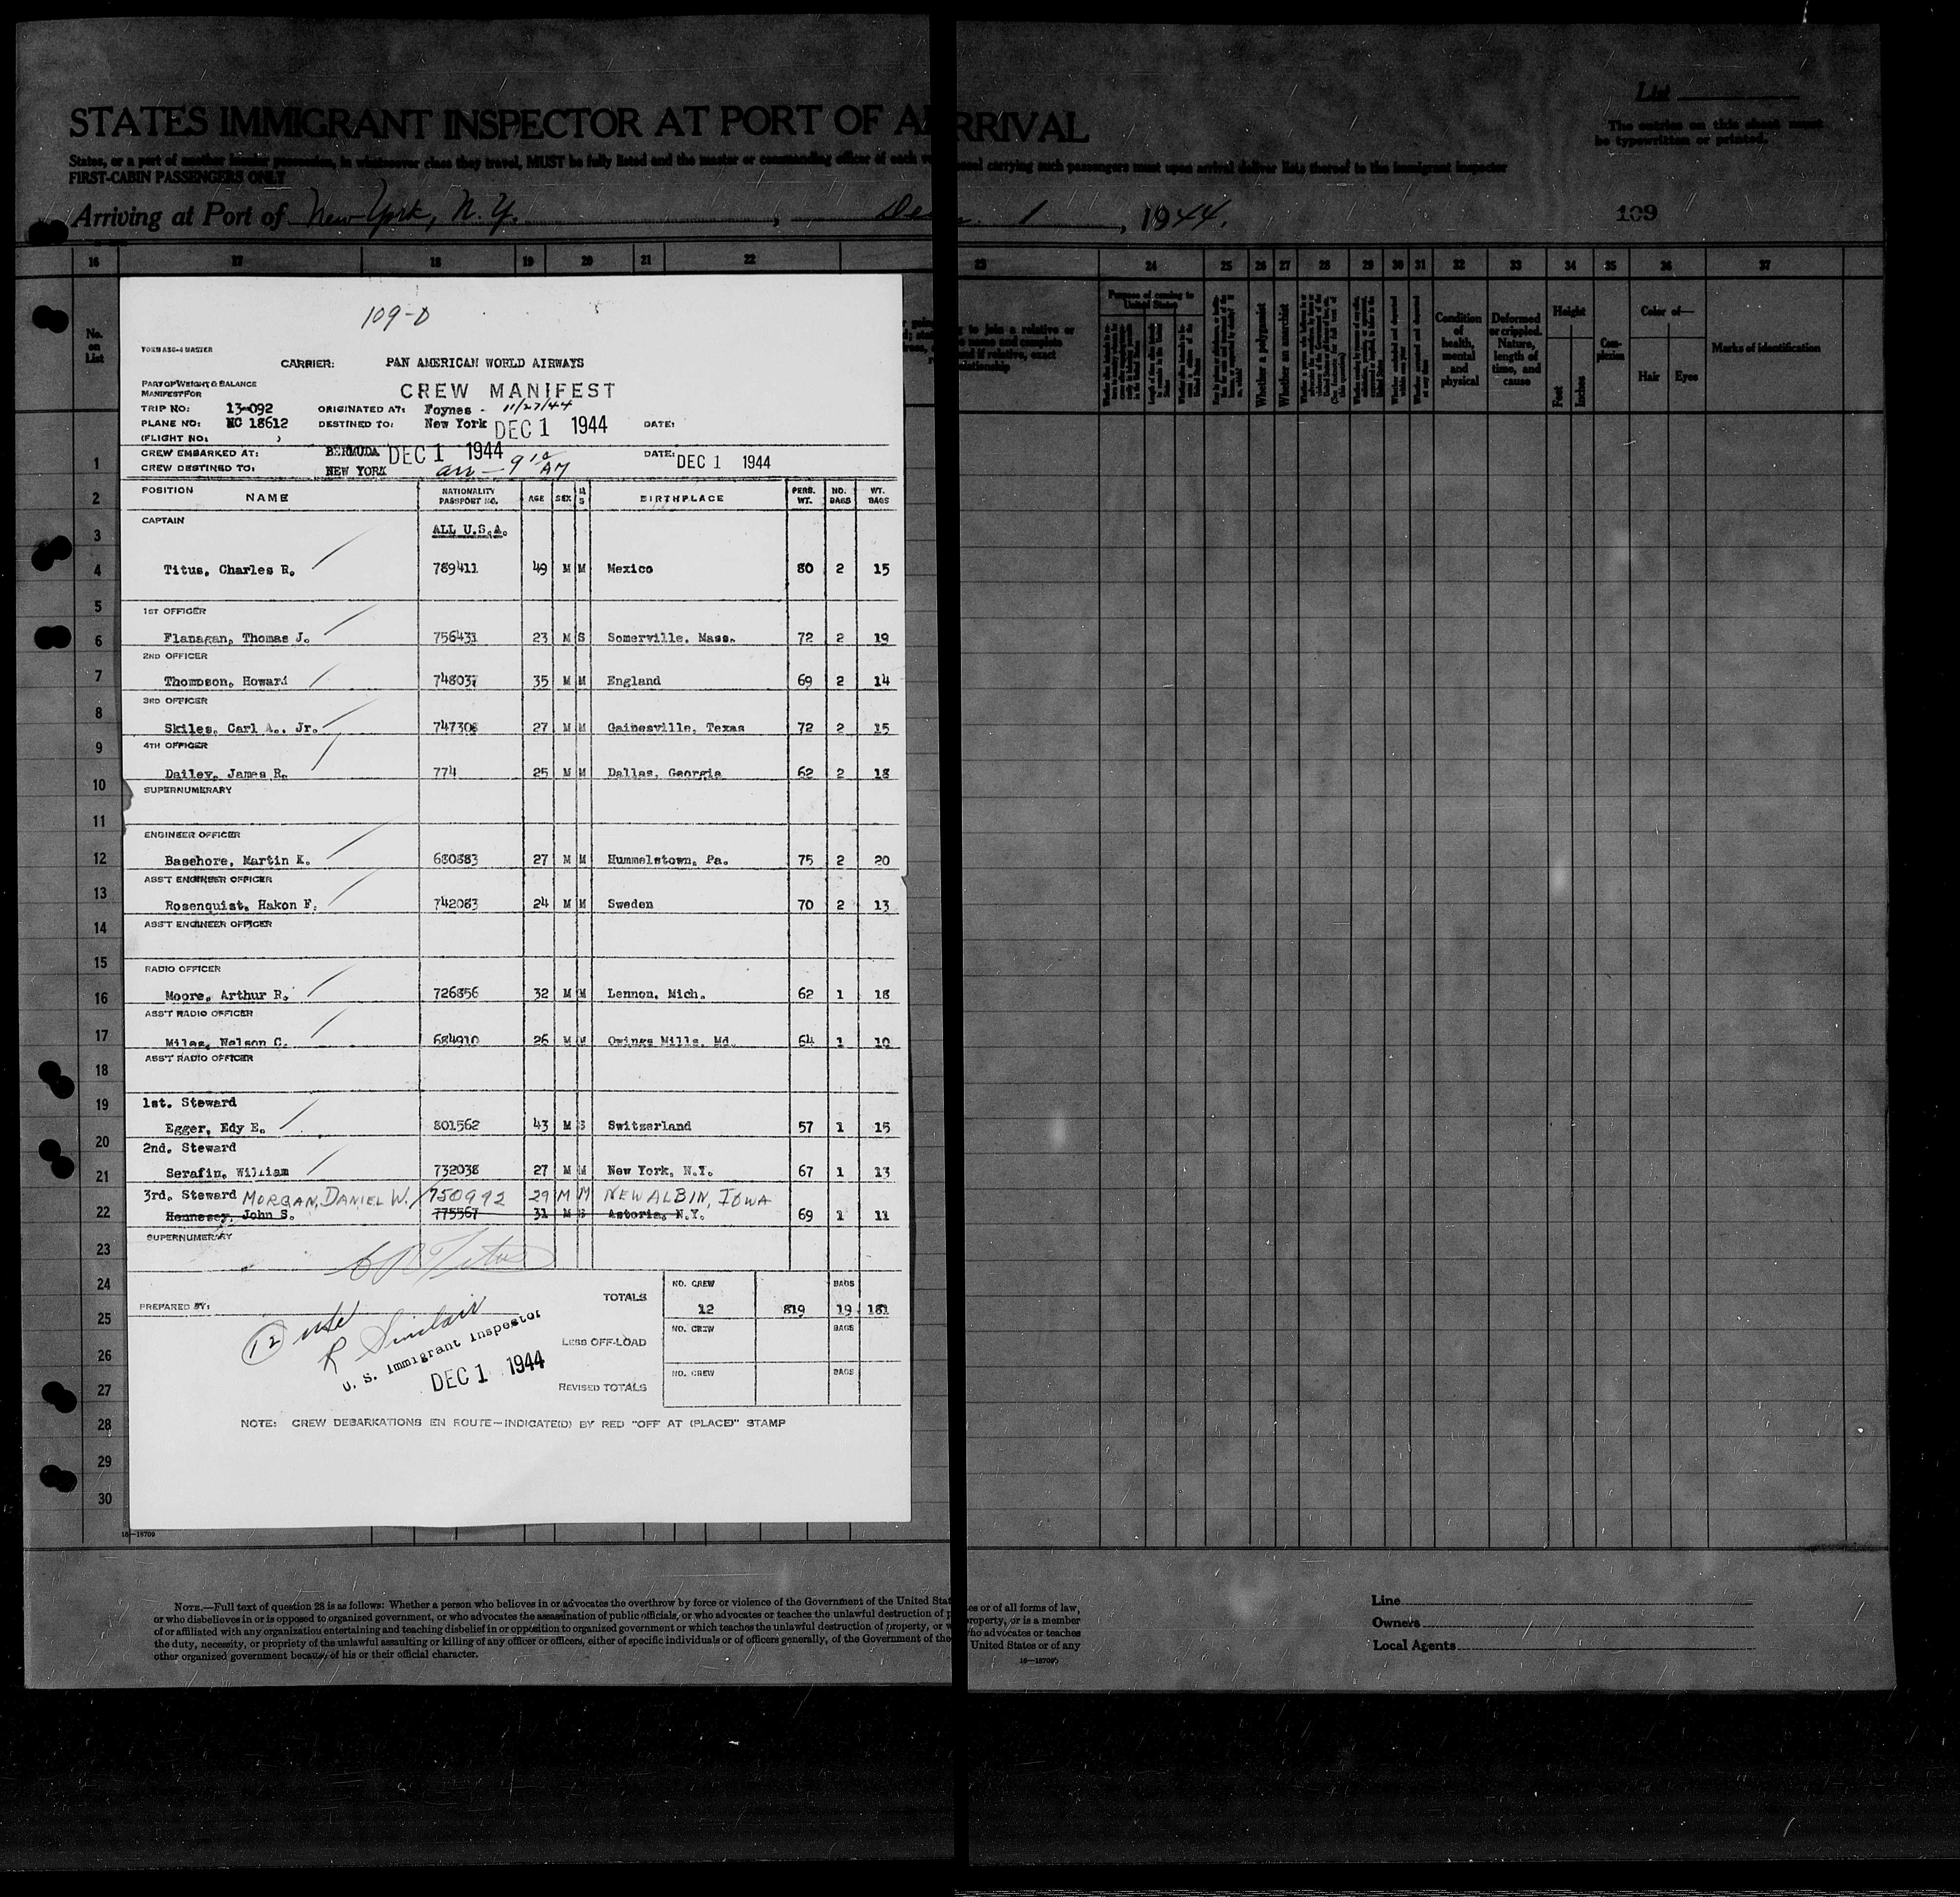 STATES IMMIGRANT INSPECTOR AT PORT OF ARRIVAL
List
The entries on this sheet must
be typewritten or printed.
FIRST-CABIN PASSENGERS ONLY
Arriving at Port of New York, N.Y., Dec. 1, 1944.
109
16 17 18 19 20 21 22 23 24 25 26 27 28 29 30 31 32 33 34 35 36 37
No. on List
Purpose of coming to United States
Whether a polygamist
Whether an anarchist
Condition of health, mental and physical
Deformed or crippled. Nature, length of time, and cause
Height
Feet
Inches
Complexion
Color of—
Hair
Eyes
Marks of identification
109-D
FORM ASG-4 MASTER
CARRIER: PAN AMERICAN WORLD AIRWAYS
PART OF WEIGHT & BALANCE
MANIFEST FOR
CREW MANIFEST
TRIP NO: 13-092 ORIGINATED AT: Foynes - 11/27/44
PLANE NO: NC 18612 DESTINED TO: New York DEC 1 1944 DATE:
(FLIGHT NO: )
CREW EMBARKED AT: BERMUDA DEC 1 1944 DATE: DEC 1 1944
CREW DESTINED TO: NEW YORK arr - 9 10 AM
POSITION NAME NATIONALITY PASSPORT NO. AGE SEX M S BIRTHPLACE PERS. WT. NO. BAGS WT. BAGS
CAPTAIN
ALL U.S.A.
Titus, Charles R. 789411 49 M M Mexico 80 2 15
1ST OFFICER
Flanagan, Thomas J. 756431 23 M S Somerville, Mass. 72 2 19
2ND OFFICER
Thompson, Howard 748037 35 M M England 69 2 14
3RD OFFICER
Skiles, Carl A., Jr. 747308 27 M M Gainesville, Texas 72 2 15
4TH OFFICER
Dailey, James R. 774 25 M M Dallas, Georgia 62 2 18
SUPERNUMERARY
ENGINEER OFFICER
Basehore, Martin K. 680883 27 M M Hummelstown, Pa. 75 2 20
ASS'T ENGINEER OFFICER
Rosenquist, Hakon F. 742083 24 M M Sweden 70 2 13
ASS'T ENGINEER OFFICER
RADIO OFFICER
Moore, Arthur R. 726856 32 M M Lennon, Mich. 62 1 18
ASS'T RADIO OFFICER
Miles, Nelson C. 684910 26 M M Owings Mills, Md. 64 1 10
ASS'T RADIO OFFICER
1st. Steward
Egger, Edy E. 801562 43 M S Switzerland 57 1 15
2nd. Steward
Serafin, William 732038 27 M M New York, N.Y. 67 1 13
3rd. Steward MORGAN, DANIEL W. 750992 29 M M NEW ALBIN, IOWA
Hennesey, John S. 775567 31 M S Astoria, N.Y. 69 1 11
SUPERNUMERARY
C R Titus
TOTALS NO. CREW 12 819 BAGS 19 181
PREPARED BY:
12 usc
R Sinclair
U. S. Immigrant Inspector
DEC 1 1944
LESS OFF-LOAD NO. CREW BAGS
REVISED TOTALS NO. CREW BAGS
NOTE: CREW DEBARKATIONS EN ROUTE—INDICATE(D) BY RED "OFF AT (PLACE)" STAMP
1
2
3
4
5
6
7
8
9
10
11
12
13
14
15
16
17
18
19
20
21
22
23
24
25
26
27
28
29
30
16—18709
NOTE.—Full text of question 28 is as follows: Whether a person who believes in or advocates the overthrow by force or violence of the Government of the United States or of all forms of law,
or who disbelieves in or is opposed to organized government, or who advocates the assassination of public officials, or who advocates or teaches the unlawful destruction of property, or is a member
of or affiliated with any organization entertaining and teaching disbelief in or opposition to organized government or which teaches the unlawful destruction of property, or who advocates or teaches
the duty, necessity, or propriety of the unlawful assaulting or killing of any officer or officers, either of specific individuals or of officers generally, of the Government of the United States or of any
other organized government because of his or their official character.
16—18709
Line
Owners
Local Agents